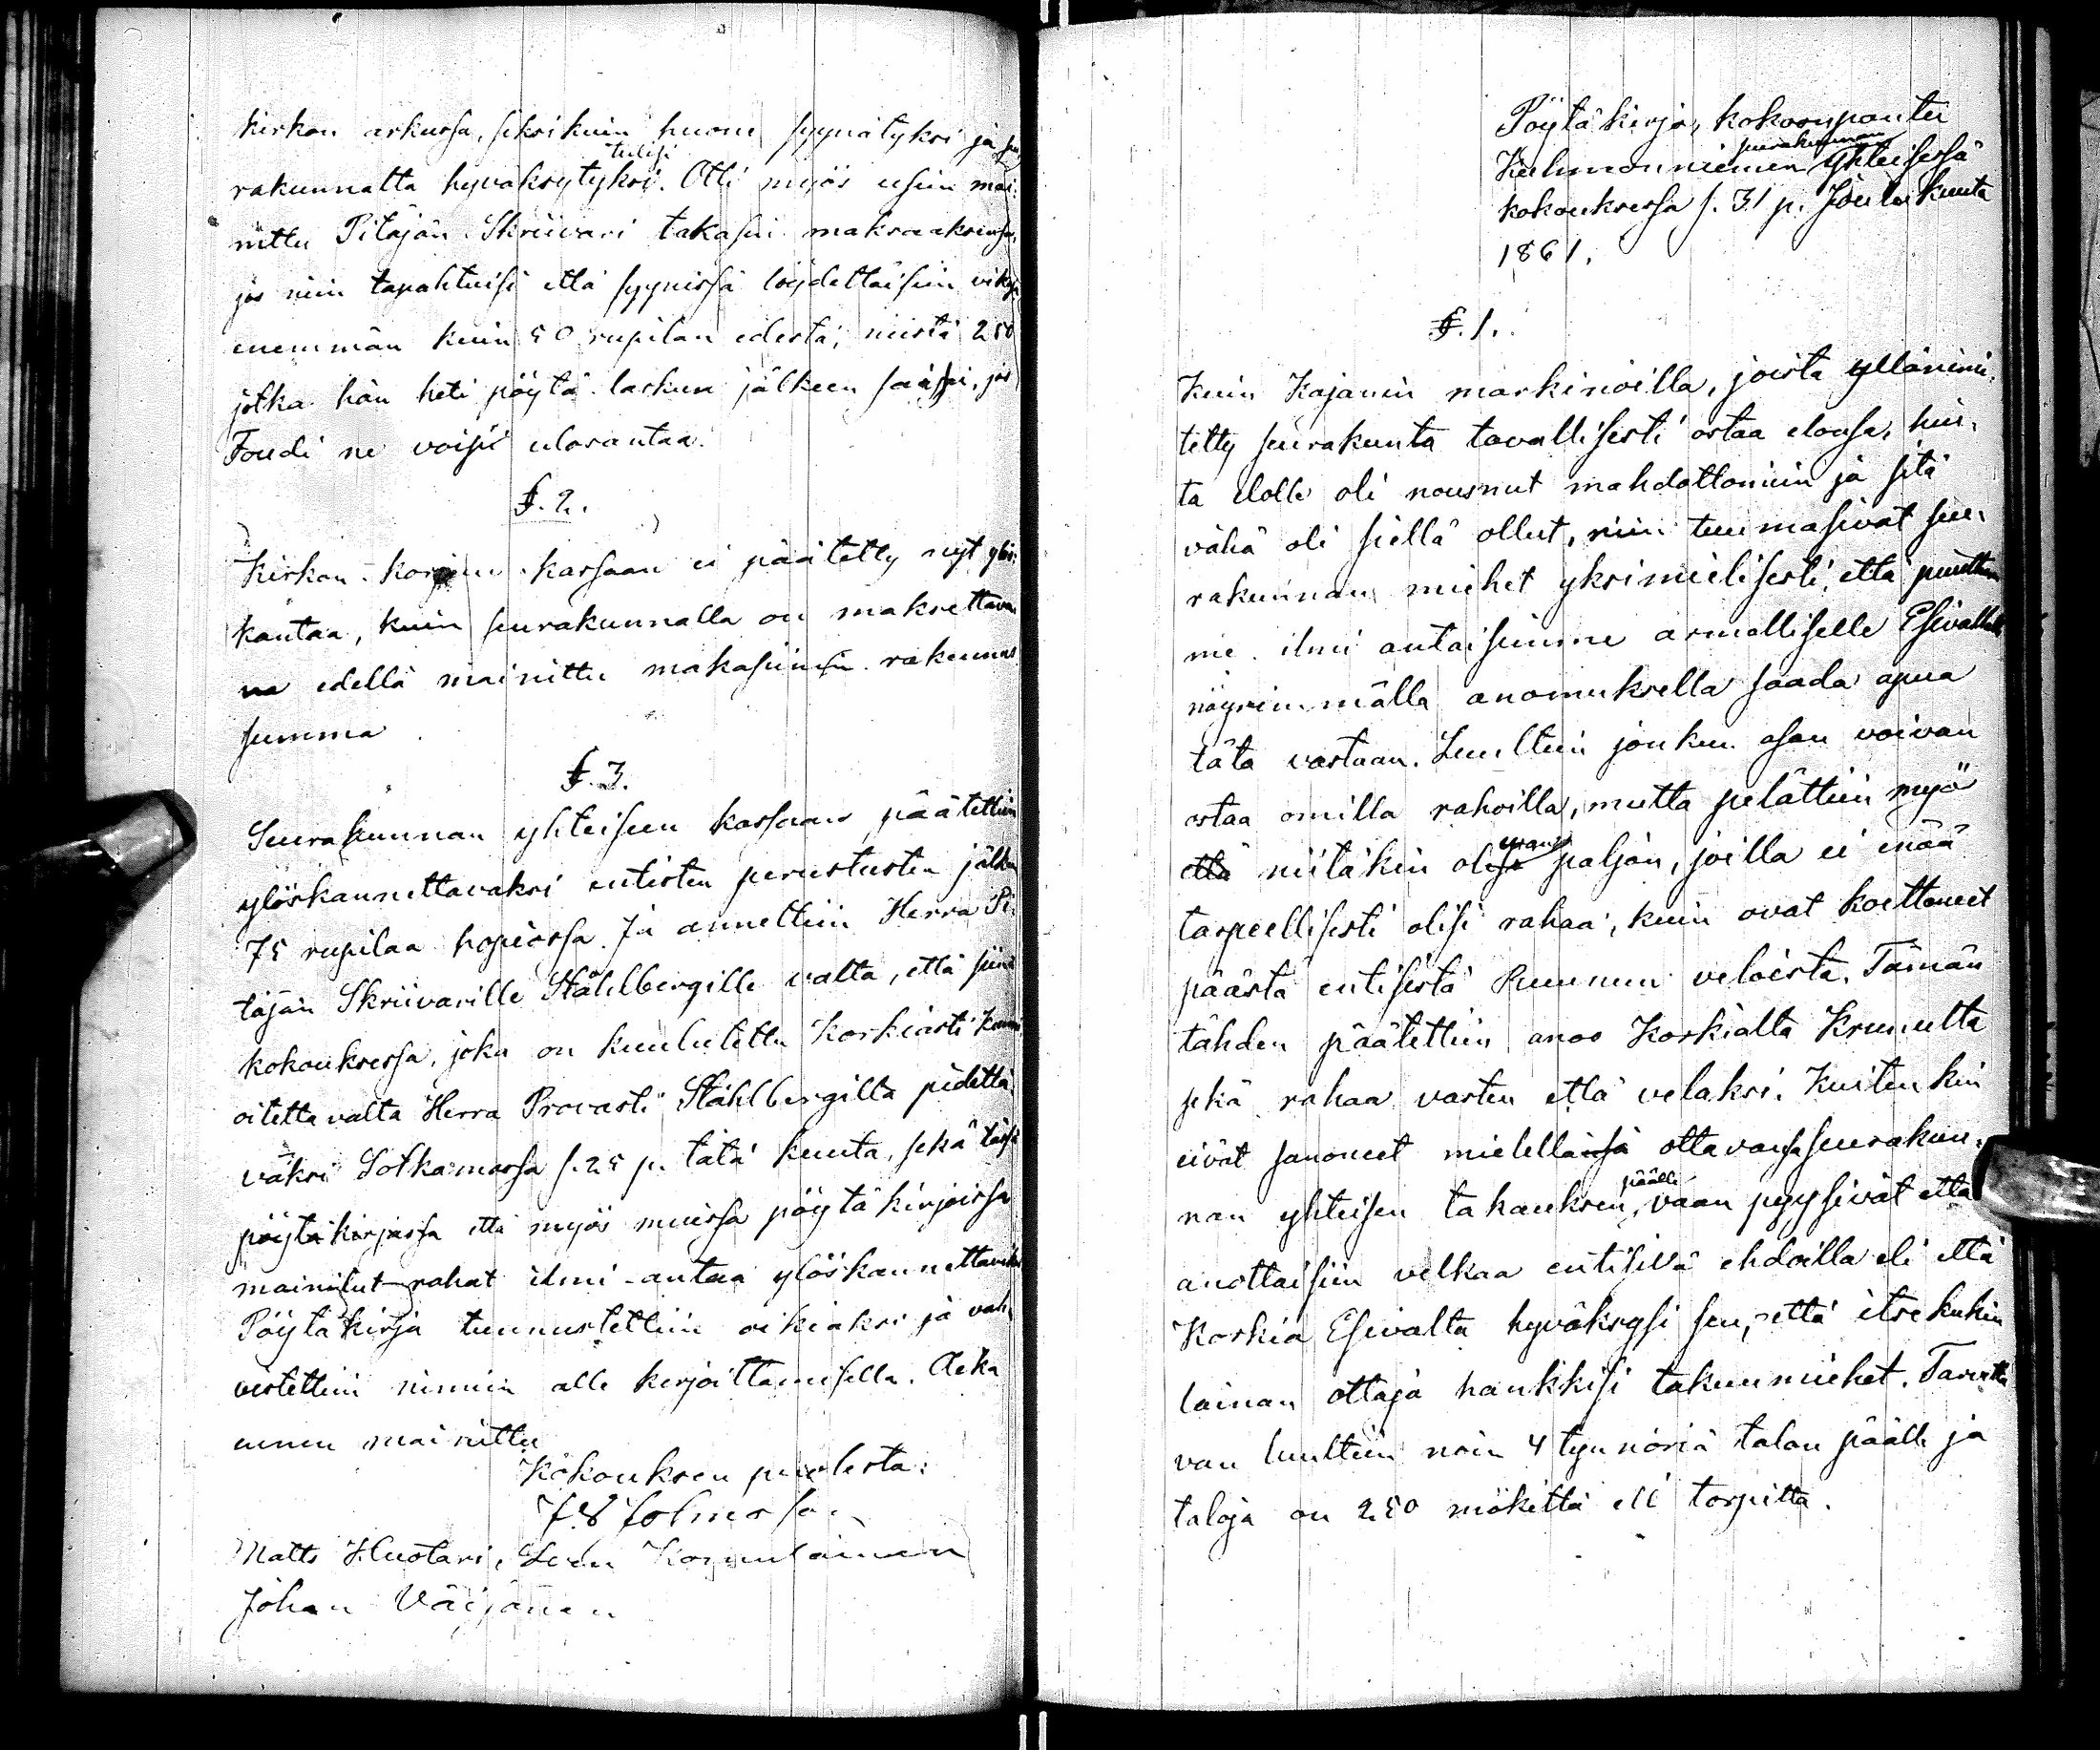 kirkon arkussa, siksi kuin huone syynätyksi ja seu
rakunnalta hyväksytyksi tulisi. Otti myös usein mai¬
nittu Pitäjän Skriivari takasin maksaaksensa,
jos niin tapahtuisi että syynissä löydettäisiin vikoja
enemmän kuin 50 ruplan edestä, niistä 250
jotka hän heti pöytä laskun jälkeen saapi, jos
Foudi ne voisi ulosantaa.
§. 2.
Kirkon kassaan ei päätetty nyt ylös
kantaa, kuin seurakunnalla on maksettava
na edellä mainittu makasiinin rakennus
summa
§. 3.
Seurakunnan yhteiseen kassaan päätettiin
ylöskannettavaksi entisten perustusten jälkeen
75 ruplaa hopeassa. Ja annettiin Herra Pi¬
täjän Skriivarille Ståhlbergille valta, että siinä
kokouksessa, joka on kuulutettu Korkiasti Kunni
oitettavalta Herra Provasti Ståhlbergilta pidettä¬
väksi Sotkamossa s. 25 p. tätä kuuta, sekä tässä
pöytäkirjassa että myös muissa pöytäkirjoissa
mainitut rahat ilmi-antaa ylöskannettaviksi
Pöytäkirja tunnustettiin oikiaksi ja vah¬
vistettiin nimein alle kirjoittamisella. Aika
ennen mainittu
Kokouksen puolesta:
Matts Huotari,
Johan Väisänen
Pöytäkirja, kokoonpantu
Kuhmonniemen seurakunnan yhteisessä
kokouksessa s. 31 p. Joulukuuta
1861.
§. 1.
Kuin Kajanin markinoilla, joista yllänimi¬
tetty seurakunta tavallisesti ostaa elonsa, hin¬
ta elolle oli nousnut mahdottomiin ja sitä
vähä oli siellä ollut, niin tuumasivat seu¬
rakunnan miehet yksimielisesti, että puuttem
me ilmi antaisimme armolliselle Esivallalle
nöyrimmällä anomuksella saada apua
tätä vastaan. Luultiin jonkun osan voivan
ostaa omilla rahoilla, mutta pelättiin myö
että niitäkin olisi paljon, joilla ei enää
tarpeellisesti olisi rahaa, kuin ovat koettaneet
päästä entisistä Kruunun veloista. Tämän
tähden päätettiin anoo Korkialta Kruunulta
sekä rahaa vasten että velaksi. Kuitenkin
eivät sanoneet mielellänsä ottavansa seurakun¬
nan yhteisen takauksen päälle, vaan pyysivät että
anottaisiin velkaa entisillä ehdoilla eli että
Korkia Esivalta hyväksysi sen, että itsekukin
lainan ottaja hankkisi takuumiehet. Tarvitta
van luultiin noin 4 tynnöriä talon päälle ja
taloja on 250 mökittä eli torpitta.